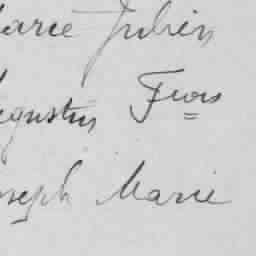 Marie Julien
Augustin Fcois
Joseph Marie